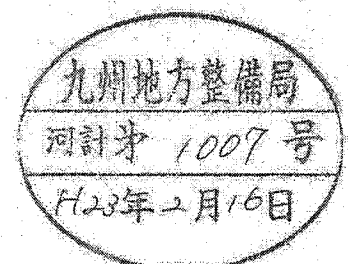 九州地方整備局
河計第 1007 号
H23年2月16日